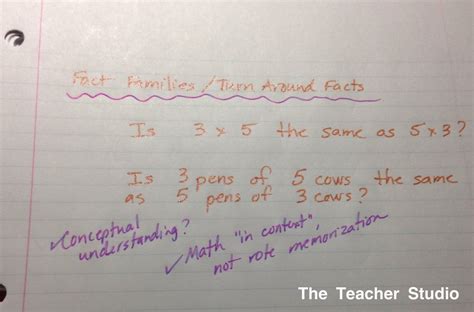 Fact Families / Turn Around Facts
Is 3 x 5 the same as 5 x 3?
Is 3 pens of 5 cows the same
as 5 pens of 3 cows?
✓Conceptual
understanding?
✓Math "in context",
not rote memorization
The Teacher Studio